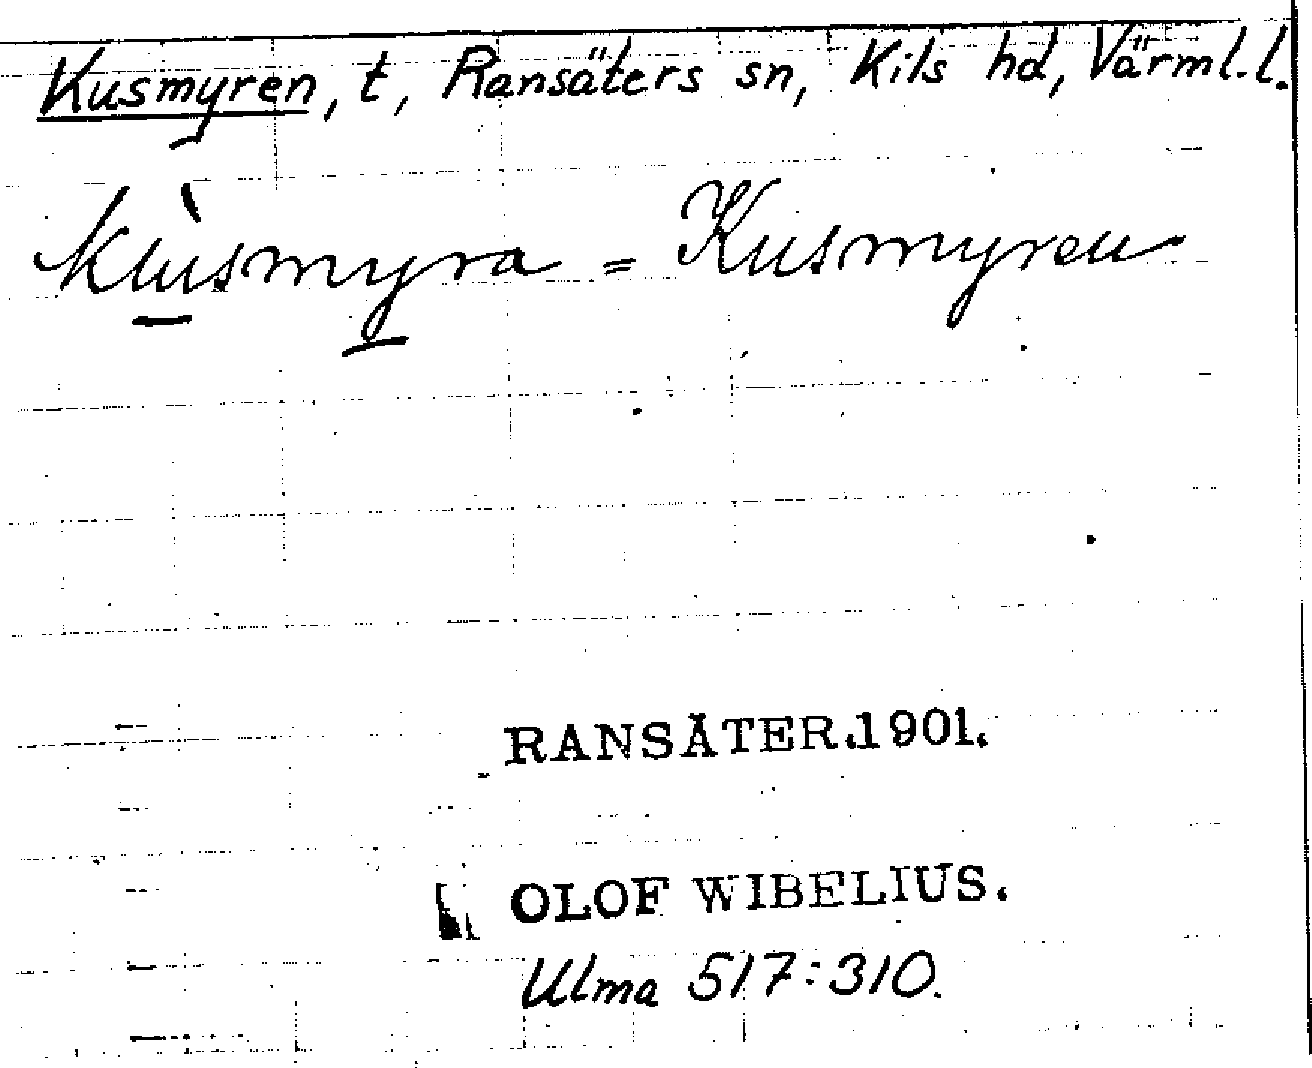 Kusmyren, t, Ransäters sn, Kils hd, Värml. l.
Kùsmyra = Kusmyren
RANSÄTER.1901.
OLOF WIBELIUS.
Ulma 517:310.